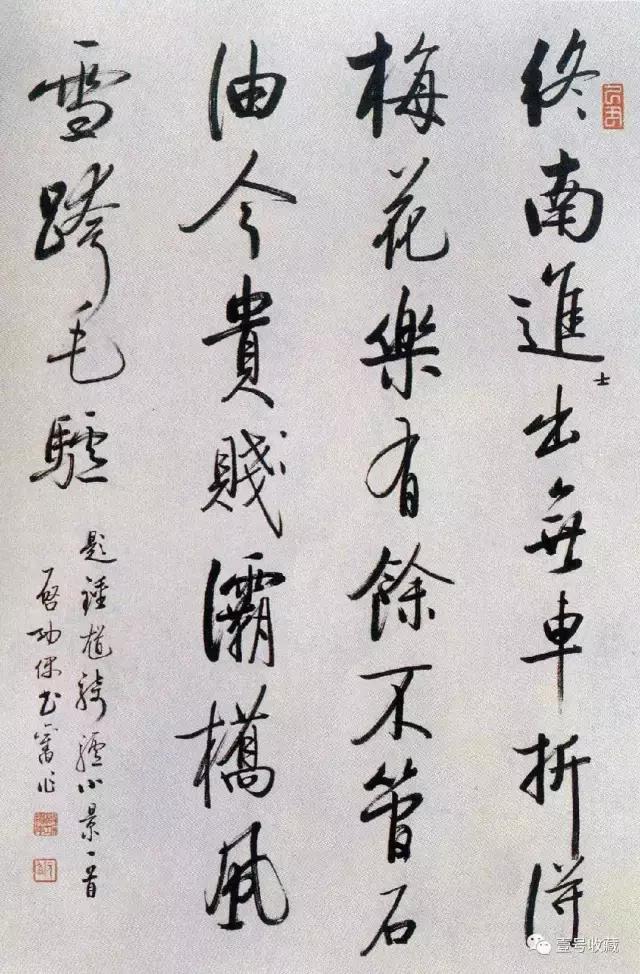 終南進士出無車折得
梅花樂有餘不管石
由今貴賤灞橋風
雪跨毛驢
題鍾馗騎驢小景一首
啓功偶書舊作
壹号收藏